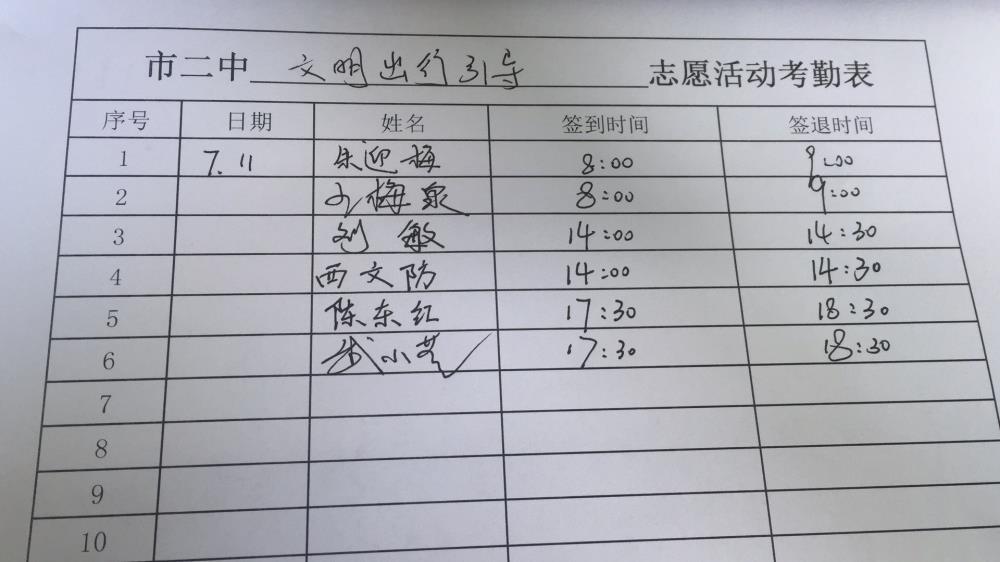 市二中 文明出行引导 志愿活动考勤表
序号 日期 姓名 签到时间 签退时间
1 7.11 朱迎梅 8:00 9:00
2 梅泉 8:00 9:00
3 刘敏 14:00 14:30
4 西文防 14:00 14:30
5 陈东红 17:30 18:30
6 武小芳 17:30 18:30
7
8
9
10